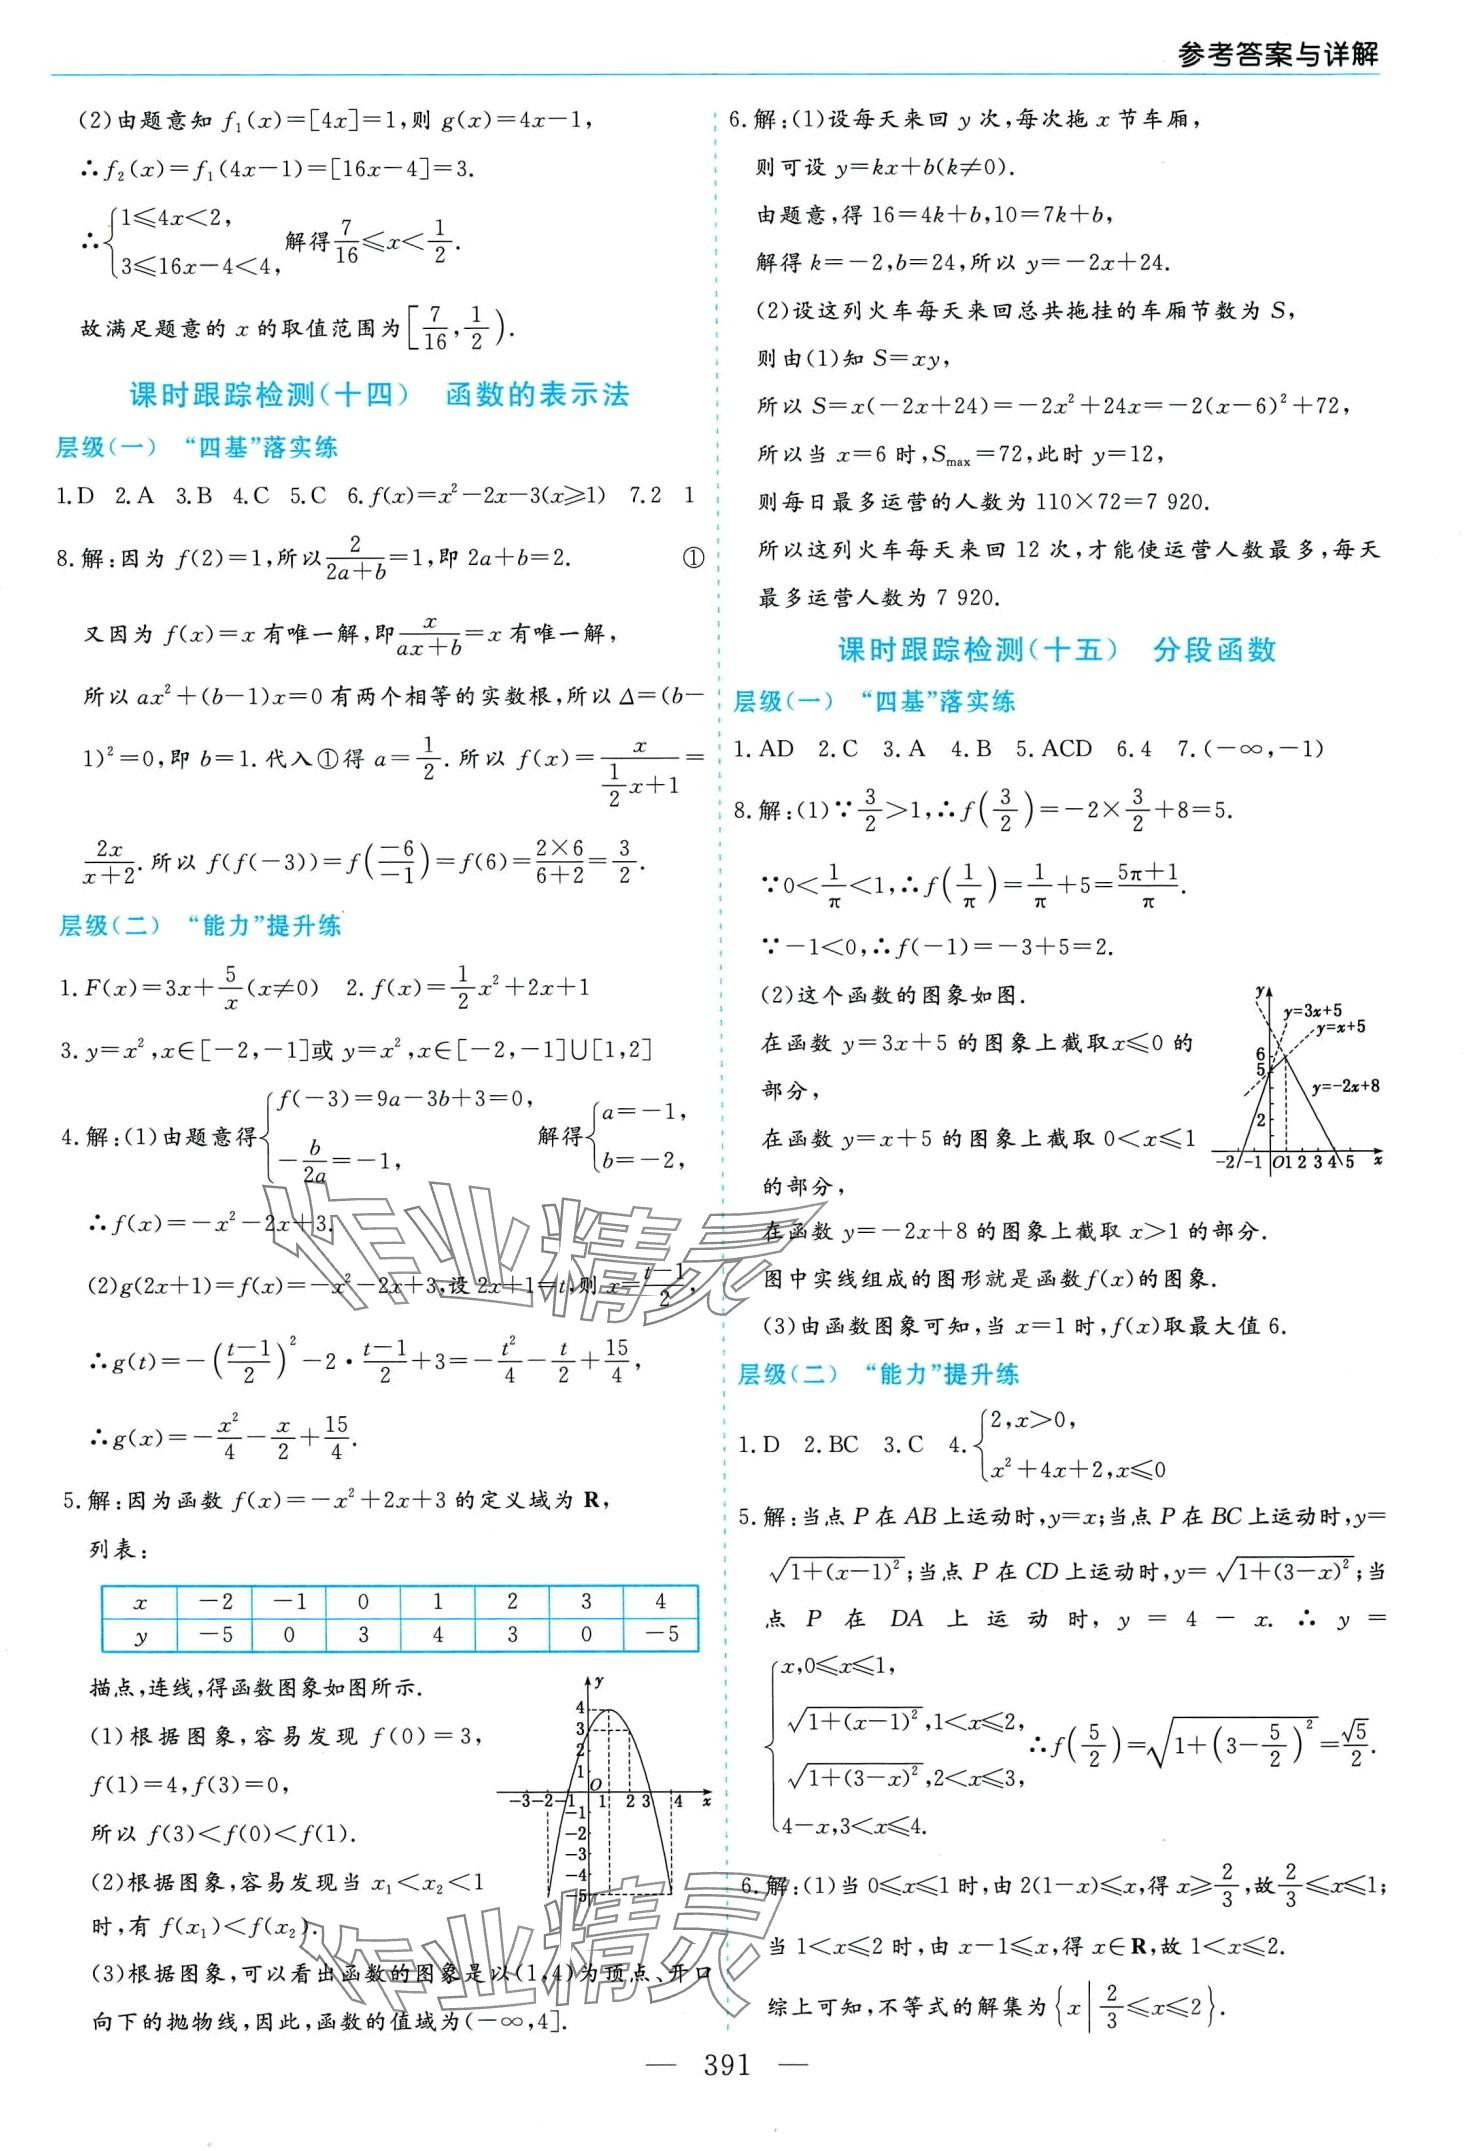 参考答案与详解
(2)由题意知 f₁(x)=[4x]=1,则 g(x)=4x-1,
∴f₂(x)=f₁(4x-1)=[16x-4]=3.
∴{1≤4x<2, 3≤16x-4<4, 解得7/16≤x<1/2.
故满足题意的 x 的取值范围为[7/16,1/2).
课时跟踪检测(十四) 函数的表示法
层级(一) “四基”落实练
1.D 2.A 3.B 4.C 5.C 6.f(x)=x²-2x-3(x≥1) 7.2 1
8.解:因为 f(2)=1,所以2/(2a+b)=1,即 2a+b=2. ①
又因为 f(x)=x 有唯一解,即x/(ax+b)=x 有唯一解,
所以 ax²+(b-1)x=0 有两个相等的实数根,所以 Δ=(b-
1)²=0,即 b=1.代入①得 a=1/2.所以 f(x)=x/(1/2x+1)=
2x/(x+2).所以 f(f(-3))=f(-6/-1)=f(6)=2×6/(6+2)=3/2.
层级(二) “能力”提升练
1.F(x)=3x+5/x(x≠0) 2.f(x)=1/2x²+2x+1
3.y=x²,x∈[-2,-1]或 y=x²,x∈[-2,-1]∪[1,2]
4.解:(1)由题意得{f(-3)=9a-3b+3=0, -b/2a=-1, 解得{a=-1, b=-2,
∴f(x)=-x²-2x+3.
(2)g(2x+1)=f(x)=-x²-2x+3,设 2x+1=t,则 x=(t-1)/2,
∴g(t)=-((t-1)/2)²-2·(t-1)/2+3=-t²/4-t/2+15/4,
∴g(x)=-x²/4-x/2+15/4.
5.解:因为函数 f(x)=-x²+2x+3 的定义域为 R,
列表:
x -2 -1 0 1 2 3 4
y -5 0 3 4 3 0 -5
描点,连线,得函数图象如图所示.
(1)根据图象,容易发现 f(0)=3,
f(1)=4,f(3)=0,
所以 f(3)<f(0)<f(1).
(2)根据图象,容易发现当 x₁<x₂<1
时,有 f(x₁)<f(x₂).
y
4
3
2
1
-3 -2 -1 O 1 2 3 4 x
-1
-2
-3
-4
-5
(3)根据图象,可以看出函数的图象是以(1,4)为顶点、开口
向下的抛物线,因此,函数的值域为(-∞,4].
6.解:(1)设每天来回 y 次,每次拖 x 节车厢,
则可设 y=kx+b(k≠0).
由题意,得 16=4k+b,10=7k+b,
解得 k=-2,b=24,所以 y=-2x+24.
(2)设这列火车每天来回总共拖挂的车厢节数为 S,
则由(1)知 S=xy,
所以 S=x(-2x+24)=-2x²+24x=-2(x-6)²+72,
所以当 x=6 时,Smax=72,此时 y=12,
则每日最多运营的人数为 110×72=7 920.
所以这列火车每天来回 12 次,才能使运营人数最多,每天
最多运营人数为 7 920.
课时跟踪检测(十五) 分段函数
层级(一) “四基”落实练
1.AD 2.C 3.A 4.B 5.ACD 6.4 7.(-∞,-1)
8.解:(1)∵3/2>1,∴f(3/2)=-2×3/2+8=5.
∵0<1/π<1,∴f(1/π)=1/π+5=(5π+1)/π.
∵-1<0,∴f(-1)=-3+5=2.
(2)这个函数的图象如图.
在函数 y=3x+5 的图象上截取x≤0 的
部分,
在函数 y=x+5 的图象上截取 0<x≤1
的部分,
y
y=3x+5
y=x+5
6
5
y=-2x+8
2
-2 -1 O 1 2 3 4 5 x
在函数 y=-2x+8 的图象上截取 x>1 的部分.
图中实线组成的图形就是函数f(x)的图象.
(3)由函数图象可知,当 x=1 时,f(x)取最大值 6.
层级(二) “能力”提升练
1.D 2.BC 3.C 4.{2,x>0, x²+4x+2,x≤0
5.解:当点 P 在 AB 上运动时,y=x;当点 P 在 BC 上运动时,y=
√(1+(x-1)²);当点 P 在 CD 上运动时,y=√(1+(3-x)²);当
点 P 在 DA 上运动时,y=4-x.∴y=
{x,0≤x≤1,
√(1+(x-1)²),1<x≤2,
√(1+(3-x)²),2<x≤3,
4-x,3<x≤4.
∴f(5/2)=√(1+(3-5/2)²)=√5/2.
6.解:(1)当 0≤x≤1 时,由 2(1-x)≤x,得 x≥2/3,故2/3≤x≤1;
当 1<x≤2 时,由 x-1≤x,得 x∈R,故 1<x≤2.
综上可知,不等式的解集为{x|2/3≤x≤2}.
— 391 —
作业精灵
作业精灵